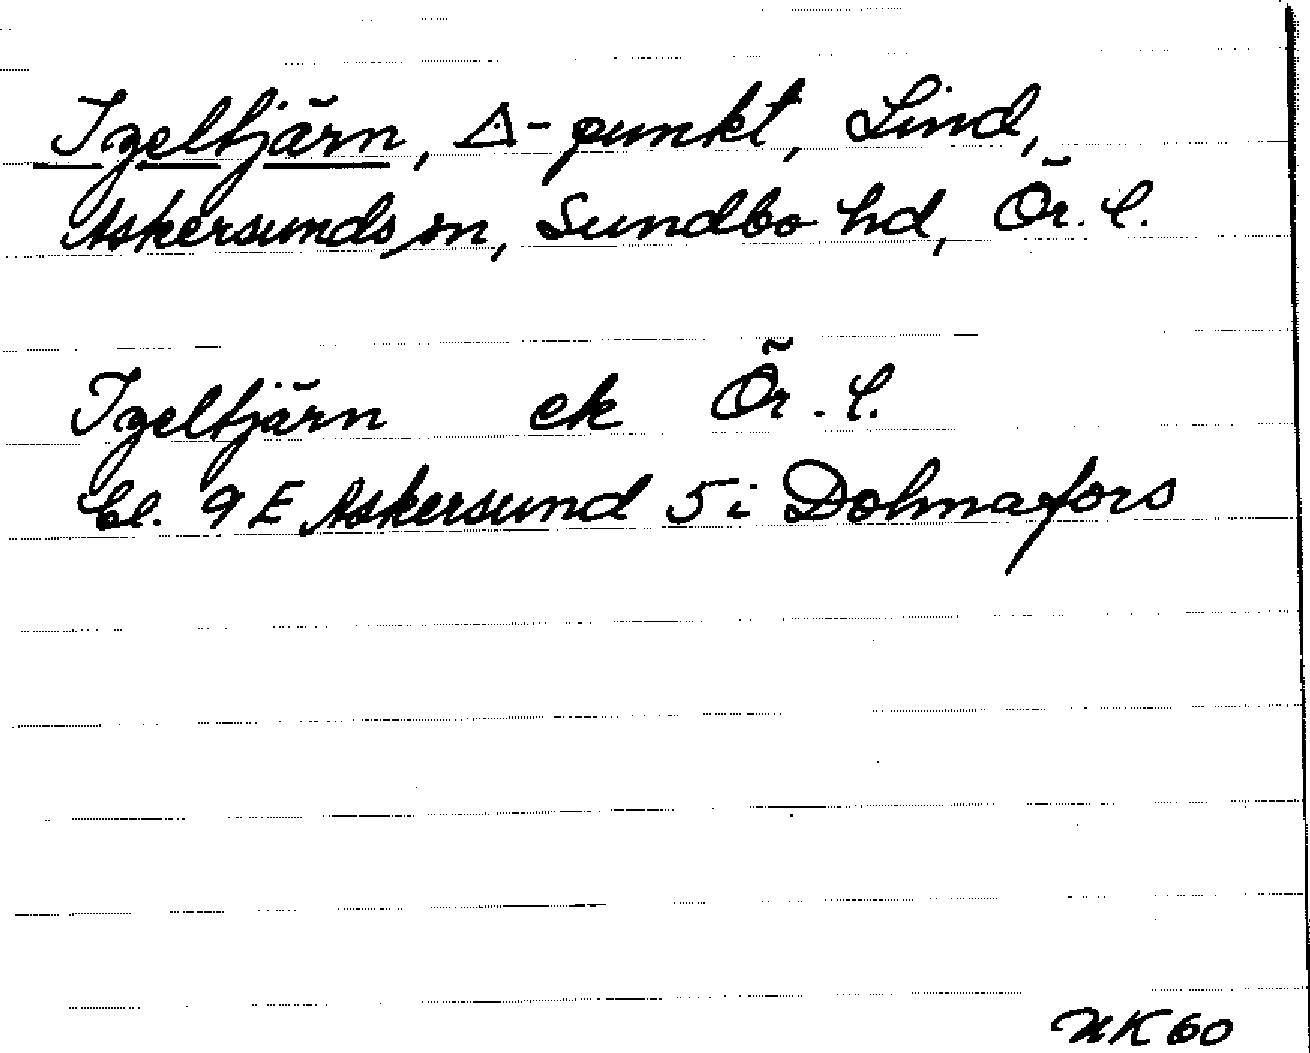 Igeltjärn, △-punkt, Lind,
Askersunds sn, Sundbo hd, Ör. l.
Igeltjärn ek Ör. l.
bl. 9E Askersund 5i Dohnafors
NK60